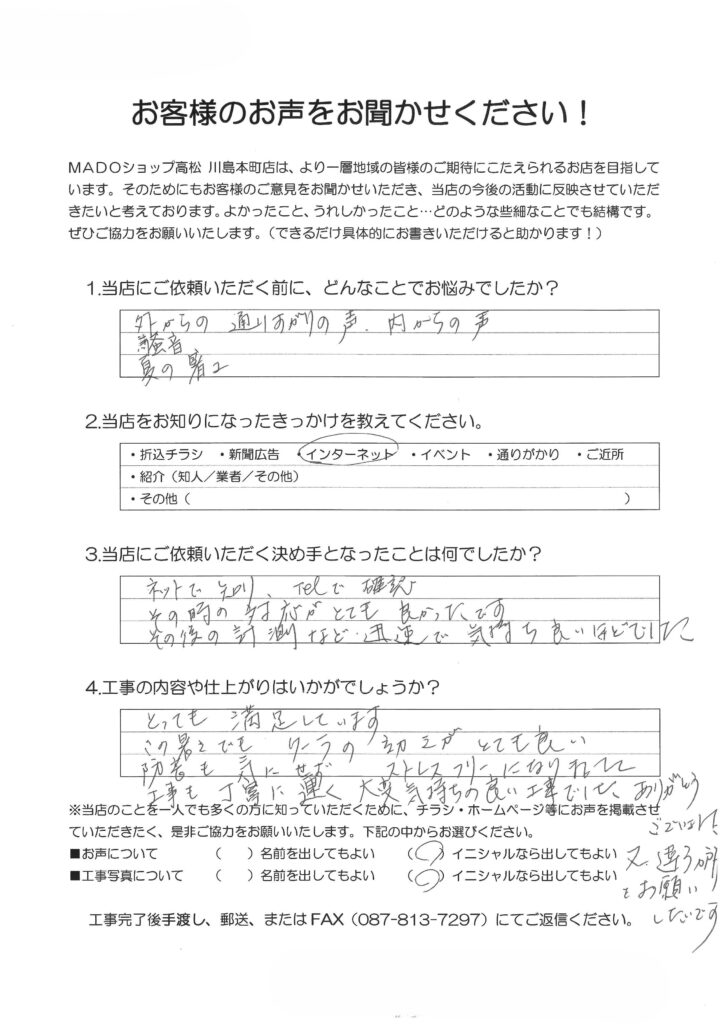 お客様のお声をお聞かせください！
ＭＡＤＯショップ高松 川島本町店は、より一層地域の皆様のご期待にこたえられるお店を目指して
います。そのためにもお客様のご意見をお聞かせいただき、当店の今後の活動に反映させていただ
きたいと考えております。よかったこと、うれしかったこと…どのような些細なことでも結構です。
ぜひご協力をお願いいたします。（できるだけ具体的にお書きいただけると助かります！）
1.当店にご依頼いただく前に、どんなことでお悩みでしたか？
外からの 通りあがりの声、内からの声
騒音
夏の暑さ
2.当店をお知りになったきっかけを教えてください。
・折込チラシ ・新聞広告 ・インターネット ・イベント ・通りがかり ・ご近所
・紹介（知人／業者／その他）
・その他（ ）
3.当店にご依頼いただく決め手となったことは何でしたか？
ネットで知り、Telで確認
その時の対応がとても良かったです
その後の計測など・迅速で気持ち良いほどでした
4.工事の内容や仕上がりはいかがでしょうか？
とっても満足しています
この暑さでもクーラの効きがとても良い
防音も気にせず ストレスフリーになりれてて
工事も丁寧に運く大変気持ちの良い工事でした、ありがとう
ございました
又、違う か所
をお願い
したいです
※当店のことを一人でも多くの方に知っていただくために、チラシ・ホームページ等にお声を掲載させ
ていただきたく、是非ご協力をお願いいたします。下記の中からお選びください。
■お声について （ ）名前を出してもよい （○）イニシャルなら出してもよい
■工事写真について （ ）名前を出してもよい （○）イニシャルなら出してもよい
工事完了後手渡し、郵送、またはFAX（087-813-7297）にてご返信ください。